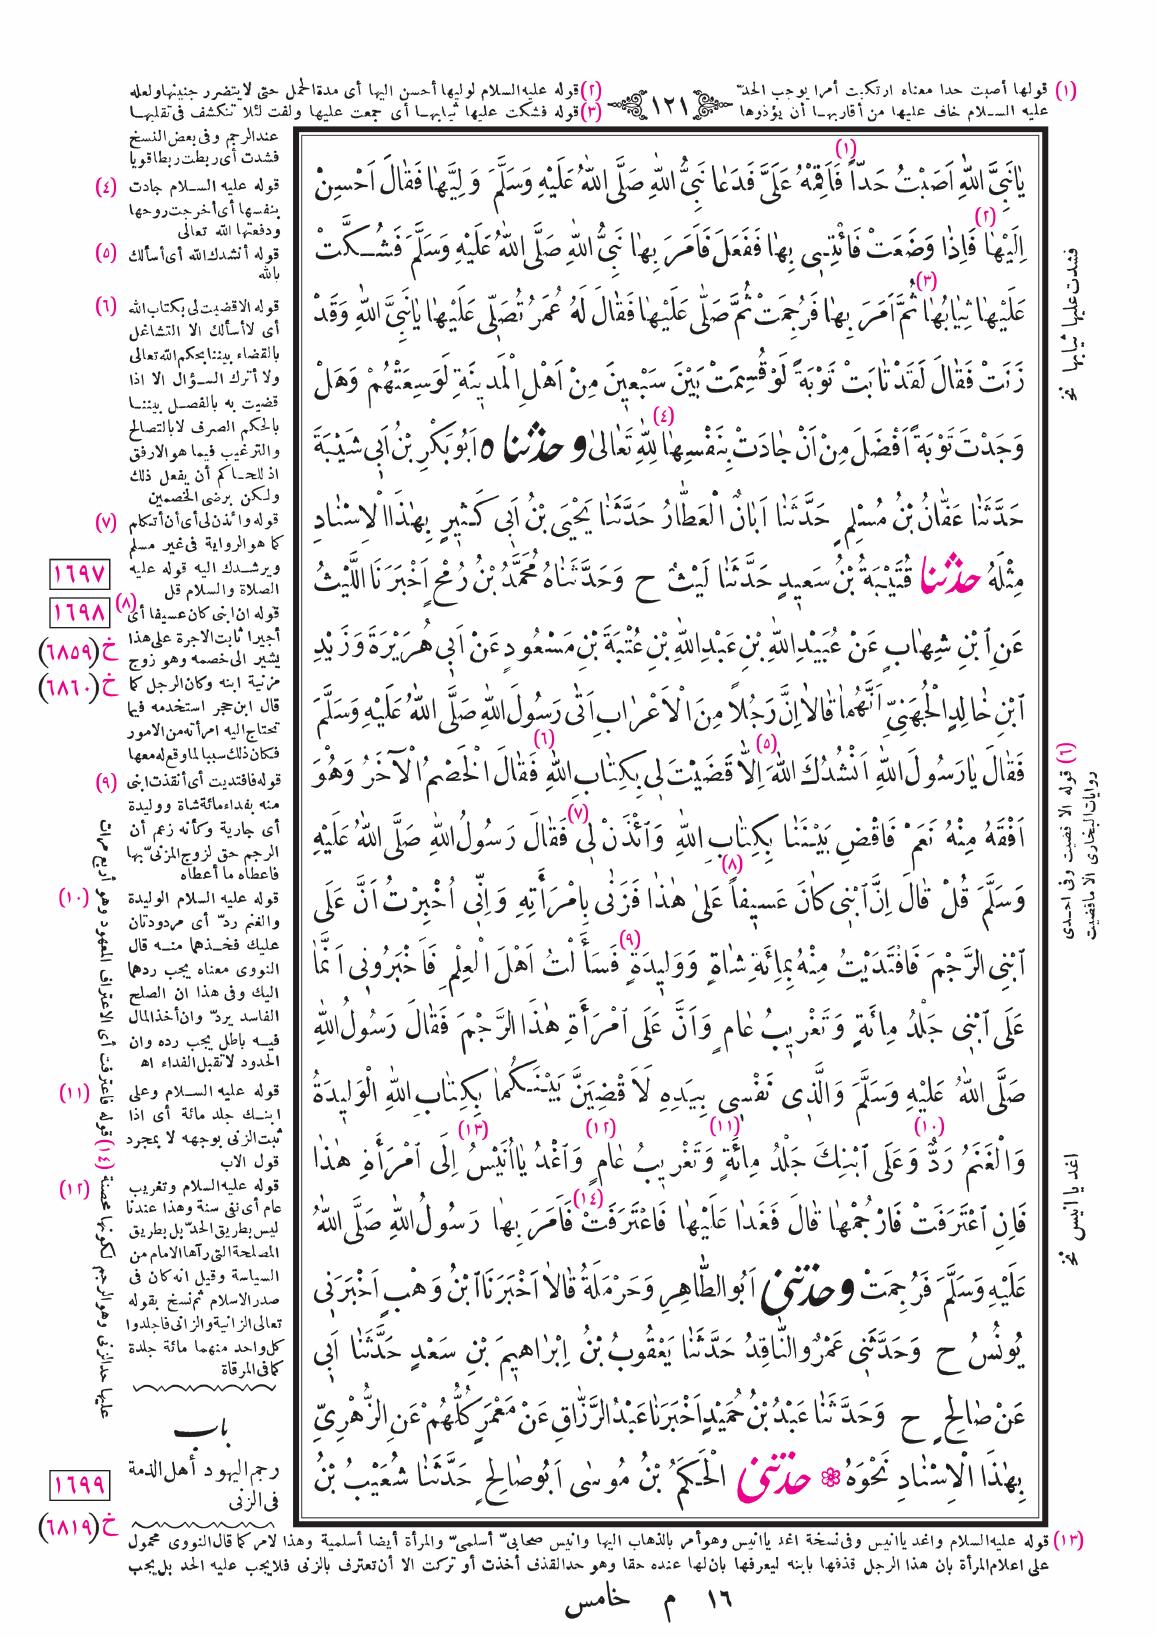 (١) قولها أصبت حدا معناه ارتكبت أمرا يوجب الحدّ
(٢) قوله عليه السلام لوليها أحسن اليها أى مدة الحمل حتى لا يتضرر جنينها ولعله
عليه السلام خاف عليها من أقاربها أن يؤذوها
١٢١
(٣) قوله فشكت عليها ثيابها أى جمعت عليها ولفت لئلا تنكشف فى تقلبها
عند الرجم وفى بعض النسخ
فشدت أى ربطت ربطا قويا
(٤) قوله عليه السلام جادت
بنفسها أى أخرجت روحها
ودفعتها الله تعالى
(٥) قوله أنشدك الله أى أسألك
بالله
(٦) قوله الا قضيت لى بكتاب الله
أى لا أسألك الا التشاغل
بالقضاء بيننا بحكم الله تعالى
ولا أترك السؤال الا اذا
قضيت به بالفصل بيننا
بالحكم الصرف لا بالتصالح
والترغيب فيما هو الارفق
اذ للحاكم أن يفعل ذلك
ولكن برضى الخصمين
(٧) قوله وائذن لى أى أن أتكلم
كما هو الرواية فى غير مسلم
ويرشدك اليه قوله عليه
الصلاة والسلام قل
(٨) قوله ان ابنى كان عسيفا أى
أجيرا ثابت الاجرة على هذا
يشير الى خصمه وهو زوج
مزنية ابنه وكان الرجل كما
قال ابن حجر استخدمه فيما
تحتاج اليه امرأته من الامور
فكان ذلك سببا لما وقع له معها
(٩) قوله فافتديت أى أنقذت ابنى
منه بفداء مائة شاة ووليدة
أى جارية وكأنه زعم أن
الرجم حق لزوج المزنىّ بها
فاعطاه ما أعطاه
(١٠) قوله عليه السلام الوليدة
والغنم ردّ أى مردودتان
عليك فخذهما منه قال
النووى معناه يجب ردها
اليك وفى هذا ان الصلح
الفاسد يردّ وان أخذ المال
فيه باطل يجب رده وان
الحدود لا تقبل الفداء اه
(١١) قوله عليه السلام وعلى
ابنك جلد مائة أى اذا
ثبت الزنى بوجهه لا بمجرد
قول الاب
(١٢) قوله عليه السلام وتغريب
عام أى نفى سنة وهذا عندنا
ليس بطريق الحدّ بل بطريق
المصلحة التى رآها الامام من
السياسة وقيل انه كان فى
صدر الاسلام ثم نسخ بقوله
تعالى الزانية والزانى فاجلدوا
كل واحد منهما مائة جلدة
كما فى المرقاة
باب
رجم اليهود أهل الذمة
فى الزنى
١٦٩٧
١٦٩٨
خ (٦٨٥٩)
خ (٦٨٦٠)
١٦٩٩
خ (٦٨١٩)
(١٤) قوله فاعترفت أى الاعتراف المعهود وهو أربع مرات
عليها حد الزنى وهو الرجم لكونها محصنة
يَا نَبِىَّ اللهِ اَصَبْتُ حَدّاً (١) فَاَقِمْهُ عَلَىَّ فَدَعَا نَبِىُّ اللهِ صَلَّى اللهُ عَلَيْهِ وَسَلَّمَ وَلِيَّهَا فَقَالَ اَحْسِنْ
اِلَيْهَا (٢) فَاِذَا وَضَعَتْ فَائْتِنِى بِهَا فَفَعَلَ فَاَمَرَ بِهَا نَبِىُّ اللهِ صَلَّى اللهُ عَلَيْهِ وَسَلَّمَ فَشُكَّتْ
عَلَيْهَا ثِيَابُهَا (٣) ثُمَّ اَمَرَ بِهَا فَرُجِمَتْ ثُمَّ صَلَّى عَلَيْهَا فَقَالَ لَهُ عُمَرُ تُصَلِّى عَلَيْهَا يَا نَبِىَّ اللهِ وَقَدْ
زَنَتْ فَقَالَ لَقَدْ تَابَتْ تَوْبَةً لَوْ قُسِمَتْ بَيْنَ سَبْعِينَ مِنْ اَهْلِ الْمَدِينَةِ لَوَسِعَتْهُمْ وَهَلْ
وَجَدْتَ تَوْبَةً اَفْضَلَ مِنْ اَنْ جَادَتْ بِنَفْسِهَا (٤) لِلّٰهِ تَعَالىٰ و حدثنا ه اَبُو بَكْرِ بْنُ اَبِى شَيْبَةَ
حَدَّثَنَا عَفَّانُ بْنُ مُسْلِمٍ حَدَّثَنَا اَبَانُ الْعَطَّارُ حَدَّثَنَا يَحْيَى بْنُ اَبِى كَثِيرٍ بِهٰذَا الْاِسْنَادِ
مِثْلَهُ حدثنا قُتَيْبَةُ بْنُ سَعِيدٍ حَدَّثَنَا لَيْثٌ ح وَحَدَّثَنَاهُ مُحَمَّدُ بْنُ رُمْحٍ اَخْبَرَنَا اللَّيْثُ
عَنِ ابْنِ شِهَابٍ عَنْ عُبَيْدِ اللهِ بْنِ عَبْدِ اللهِ بْنِ عُتْبَةَ بْنِ مَسْعُودٍ عَنْ اَبِى هُرَيْرَةَ وَزَيْدِ
ابْنِ خَالِدٍ الْجُهَنِىِّ اَنَّهُمَا قَالَا اِنَّ رَجُلاً مِنَ الْاَعْرَابِ اَتَى رَسُولَ اللهِ صَلَّى اللهُ عَلَيْهِ وَسَلَّمَ
فَقَالَ يَا رَسُولَ اللهِ اَنْشُدُكَ اللهَ (٥) اِلَّا قَضَيْتَ لِى بِكِتَابِ اللهِ (٦) فَقَالَ الْخَصْمُ الْآخَرُ وَهُوَ
اَفْقَهُ مِنْهُ نَعَمْ فَاقْضِ بَيْنَنَا بِكِتَابِ اللهِ وَائْذَنْ لِى (٧) فَقَالَ رَسُولُ اللهِ صَلَّى اللهُ عَلَيْهِ
وَسَلَّمَ قُلْ قَالَ اِنَّ ابْنِى كَانَ عَسِيفاً (٨) عَلىٰ هٰذَا فَزَنٰى بِامْرَأَتِهِ وَاِنِّى اُخْبِرْتُ اَنَّ عَلَى
ابْنِى الرَّجْمَ فَافْتَدَيْتُ مِنْهُ بِمِائَةِ شَاةٍ وَوَلِيدَةٍ (٩) فَسَأَلْتُ اَهْلَ الْعِلْمِ فَاَخْبَرُونِى اَنَّمَا
عَلَى ابْنِى جَلْدُ مِائَةٍ وَتَغْرِيبُ عَامٍ وَاَنَّ عَلَى امْرَأَةِ هٰذَا الرَّجْمَ فَقَالَ رَسُولُ اللهِ
صَلَّى اللهُ عَلَيْهِ وَسَلَّمَ وَالَّذِى نَفْسِى بِيَدِهِ لَاَقْضِيَنَّ بَيْنَكُمَا بِكِتَابِ اللهِ الْوَلِيدَةُ
وَالْغَنَمُ رَدٌّ (١٠) وَعَلَى ابْنِكَ جَلْدُ مِائَةٍ (١١) وَتَغْرِيبُ عَامٍ (١٢) وَاغْدُ يَا اُنَيْسُ (١٣) اِلَى امْرَأَةِ هٰذَا
فَاِنِ اعْتَرَفَتْ فَارْجُمْهَا قَالَ فَغَدَا عَلَيْهَا فَاعْتَرَفَتْ (١٤) فَاَمَرَ بِهَا رَسُولُ اللهِ صَلَّى اللهُ
عَلَيْهِ وَسَلَّمَ فَرُجِمَتْ وحدثنى اَبُو الطَّاهِرِ وَحَرْمَلَةُ قَالَا اَخْبَرَنَا ابْنُ وَهْبٍ اَخْبَرَنِى
يُونُسُ ح وَحَدَّثَنِى عَمْرٌو النَّاقِدُ حَدَّثَنَا يَعْقُوبُ بْنُ اِبْرَاهِيمَ بْنِ سَعْدٍ حَدَّثَنَا اَبِى
عَنْ صَالِحٍ ح وَحَدَّثَنَا عَبْدُ بْنُ حُمَيْدٍ اَخْبَرَنَا عَبْدُ الرَّزَّاقِ عَنْ مَعْمَرٍ كُلُّهُمْ عَنِ الزُّهْرِىِّ
بِهٰذَا الْاِسْنَادِ نَحْوَهُ حدثنى الْحَكَمُ بْنُ مُوسٰى اَبُو صَالِحٍ حَدَّثَنَا شُعَيْبُ بْنُ
فشدت عليها ثيابها نخ
(٦) قوله الا قضيت وفى احدى
روايات البخارى الا ماقضيت
اغد يا انيس نخ
(١٣) قوله عليه السلام واغد يا انيس وفى نسخة اغد يا انيس وهو أمر بالذهاب اليها وانيس صحابىّ أسلمىّ والمرأة أيضا أسلمية وهذا لامر كما قال النووى محمول
على اعلام المرأة بان هذا الرجل قذفها بابنه ليعرفها بان لها عنده حقا وهو حد القذف أخذت أو تركت الا أن تعترف بالزنى فلا يجب عليه الحد بل يجب
١٦ م خامس